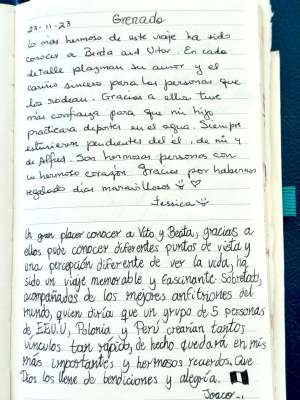 23-11-23
Grenada
Lo más hermoso de este viaje ha sido
conocer a Beata and Vitor. En cada
detalle plasman su amor y el
cariño sincero para las personas que
los rodean. Gracias a ellos tuve
más confianza para que mi hijo
practicara deportes en el agua. Siempre
estuvieron pendientes del el, de mi y
de Alfred. Son hermosas personas con
un hermoso corazón. Gracias por habernos
regalado días maravillosos
Jessica
Un gran placer conocer a Vito y Beata, gracias a
ellos pude conocer diferentes puntos de vista y
una percepción diferente de ver la vida, ha
sido un viaje memorable y fascinante. Sobretodo,
acompañados de los mejores anfitriones del
mundo, quien diría que un grupo de 5 personas
de EE.U.U, Polonia y Perú crearían tantos
vínculos tan rápido, de hecho quedará en mis
más importantes y hermosos recuerdos. Que
Dios los llene de bendiciones y alegría.